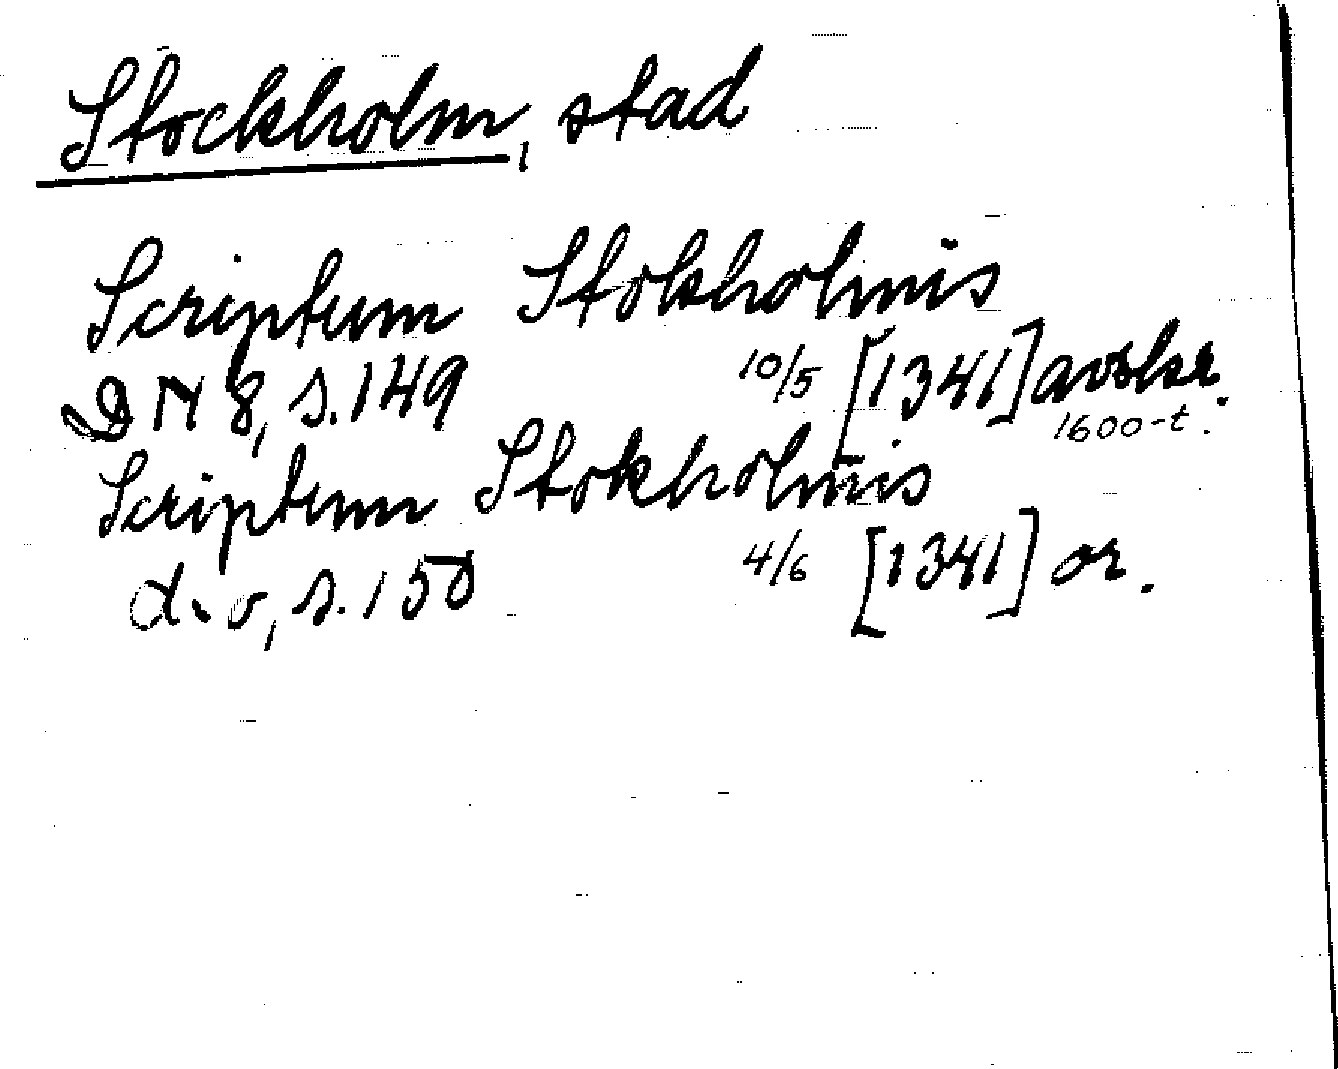 Stockholm, stad
Scriptum Stokholmis
DN 8, s. 149 10/5 [1341] avskr.
1600-t.
Scriptum Stokholmis
d:o, s. 150 4/6 [1341] or.